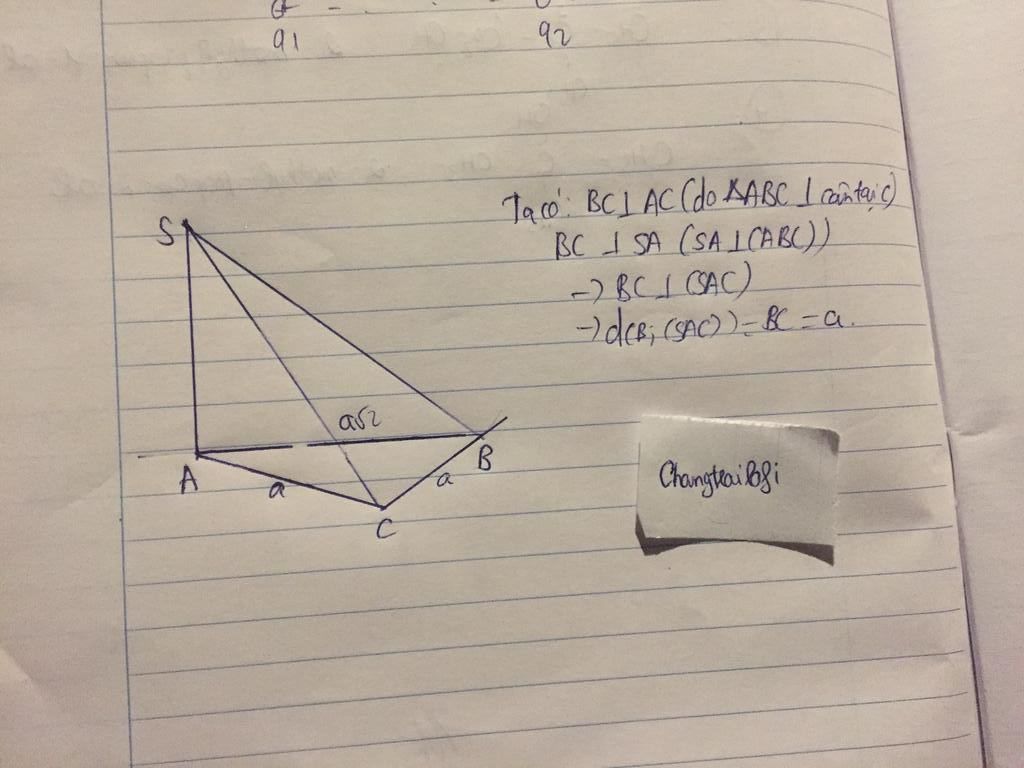 91
92
Ta có: BC ⊥ AC (do ΔABC ⊥ cân tại C)
BC ⊥ SA (SA ⊥ (ABC))
→ BC ⊥ (SAC)
→ d(B; (SAC)) = BC = a.
S
a√2
A
B
a
a
C